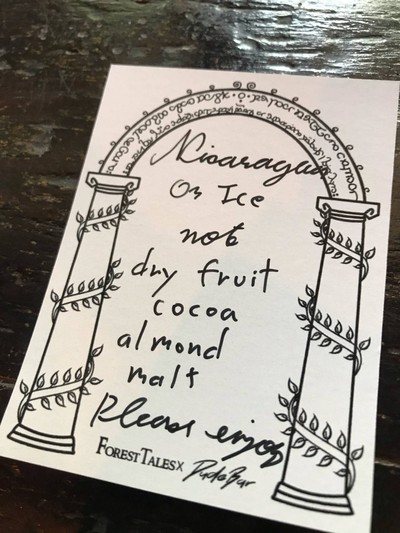 Nicaragua
On Ice
not
dry fruit
cocoa
almond
malt
Please enjoy
FOREST TALES X